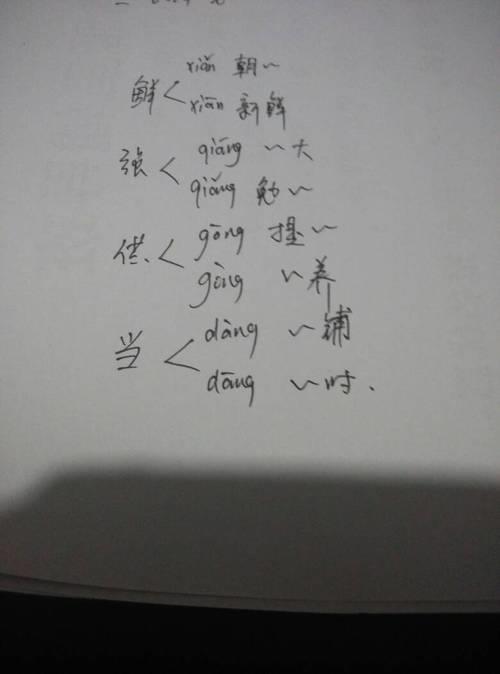 鲜 < xiǎn 朝~
xiān 新鲜
强 < qiáng ~大
qiǎng 勉~
供 < gōng 提~
gòng ~养
当 < dàng ~铺
dāng ~时.